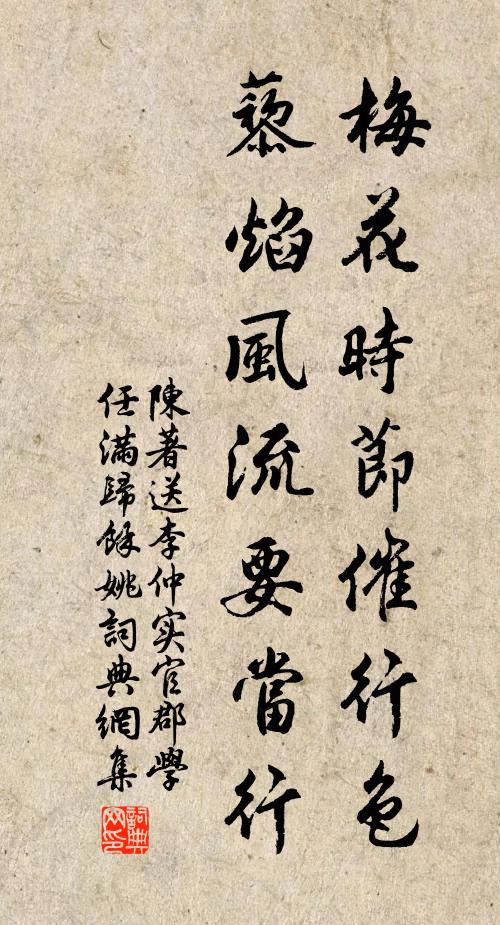 梅花時節催行色
藜焰風流要當行
陳著送李仲实官郡學
任滿歸餘姚詞典網集
詞典
网印